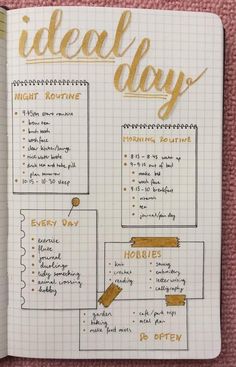 ideal
day
NIGHT ROUTINE
9-9:45pm start routine
brew tea
brush teeth
wash face
clear kitchen/lounge
fill water bottle
drink tea and take pill
plan tomorrow
10:15 - 10:30 sleep
MORNING ROUTINE
8:15 - 8:45 wake up
9 - 9:15 out of bed
make bed
wash face
9:15 - 10 breakfast
tea
journal/plan day
EVERY DAY
exercise
flute
journal
duolingo
tidy something
animal crossing
hobby
HOBBIES
knit
crochet
reading
sewing
embroidery
letter writing
calligraphy
garden
baking
make food mixes
cafe/park trips
meal plan
DO OFTEN